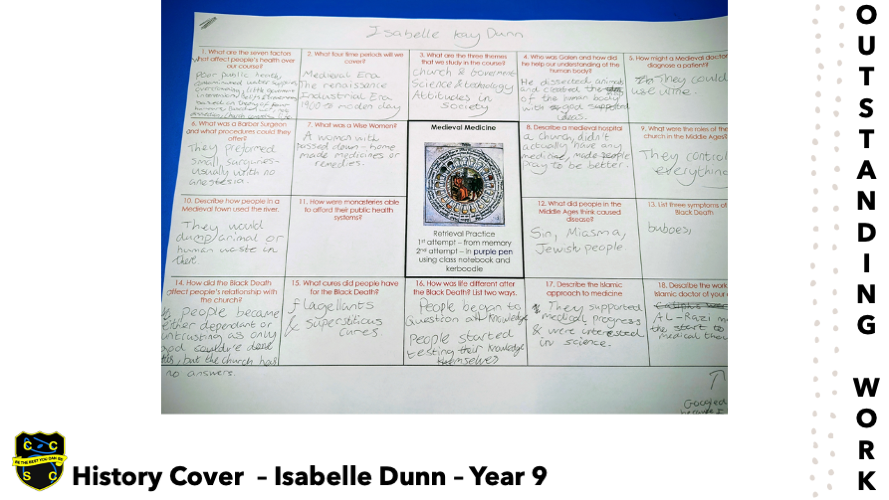 Isabelle Kay Dunn
1. What are the seven factors
that affect people's health over
our course?
Poor public health,
2. What four time periods will we
cover?
Medieval Era
The renaissance
Industrial Era
1900 to moden day
3. What are the three themes
that we study in the course?
Church & Goverment
Science & technology
Attitudes in
society
4. Who was Galen and how did
he help our understanding of the
human body?
He dissected animals
and
of the human body
with
ideas.
5. How might a Medieval doctor
diagnose a patient?
They could
use urine.
6. What was a Barber Surgeon
and what procedures could they
offer?
They preformed
small surguries-
usually with no
anestesia.
7. What was a Wise Women?
A women with
passed down - home
made medicines or
remedies.
Medieval Medicine
Retrieval Practice
1st attempt – from memory
2nd attempt – in purple pen
using class notebook and
kerboodle
8. Describe a medieval hospital
a church, didn't
actually have any
medicine, made people
pray to be better.
9. What were the roles of the
church in the Middle Ages?
They control
everything
10. Describe how people in a
Medieval town used the river.
They would
dump animal or
human waste in
there.
11. How were monasteries able
to afford their public health
systems?
12. What did people in the
Middle Ages think caused
disease?
Sin, Miasma,
Jewish people
13. List three symptoms of
Black Death
buboes,
14. How did the Black Death
affect people's relationship with
the church?
people became
either dependant or
untrusting as only
god could've done
this, but the church had
no answers.
15. What cures did people have
for the Black Death?
flagellants
& superstitious
cures
16. How was life different after
the Black Death? List two ways.
People began to
Question old knowledge
People started
testing their knowledge
themselves
17. Describe the Islamic
approach to medicine
They supported
medical progress
& were interested
in science.
18. Describe the work
Islamic doctor of your
AL-Razi
the start to
medical
Googled
because I
OUTSTANDING WORK
C C
BE THE BEST YOU CAN BE
S C
History Cover – Isabelle Dunn – Year 9